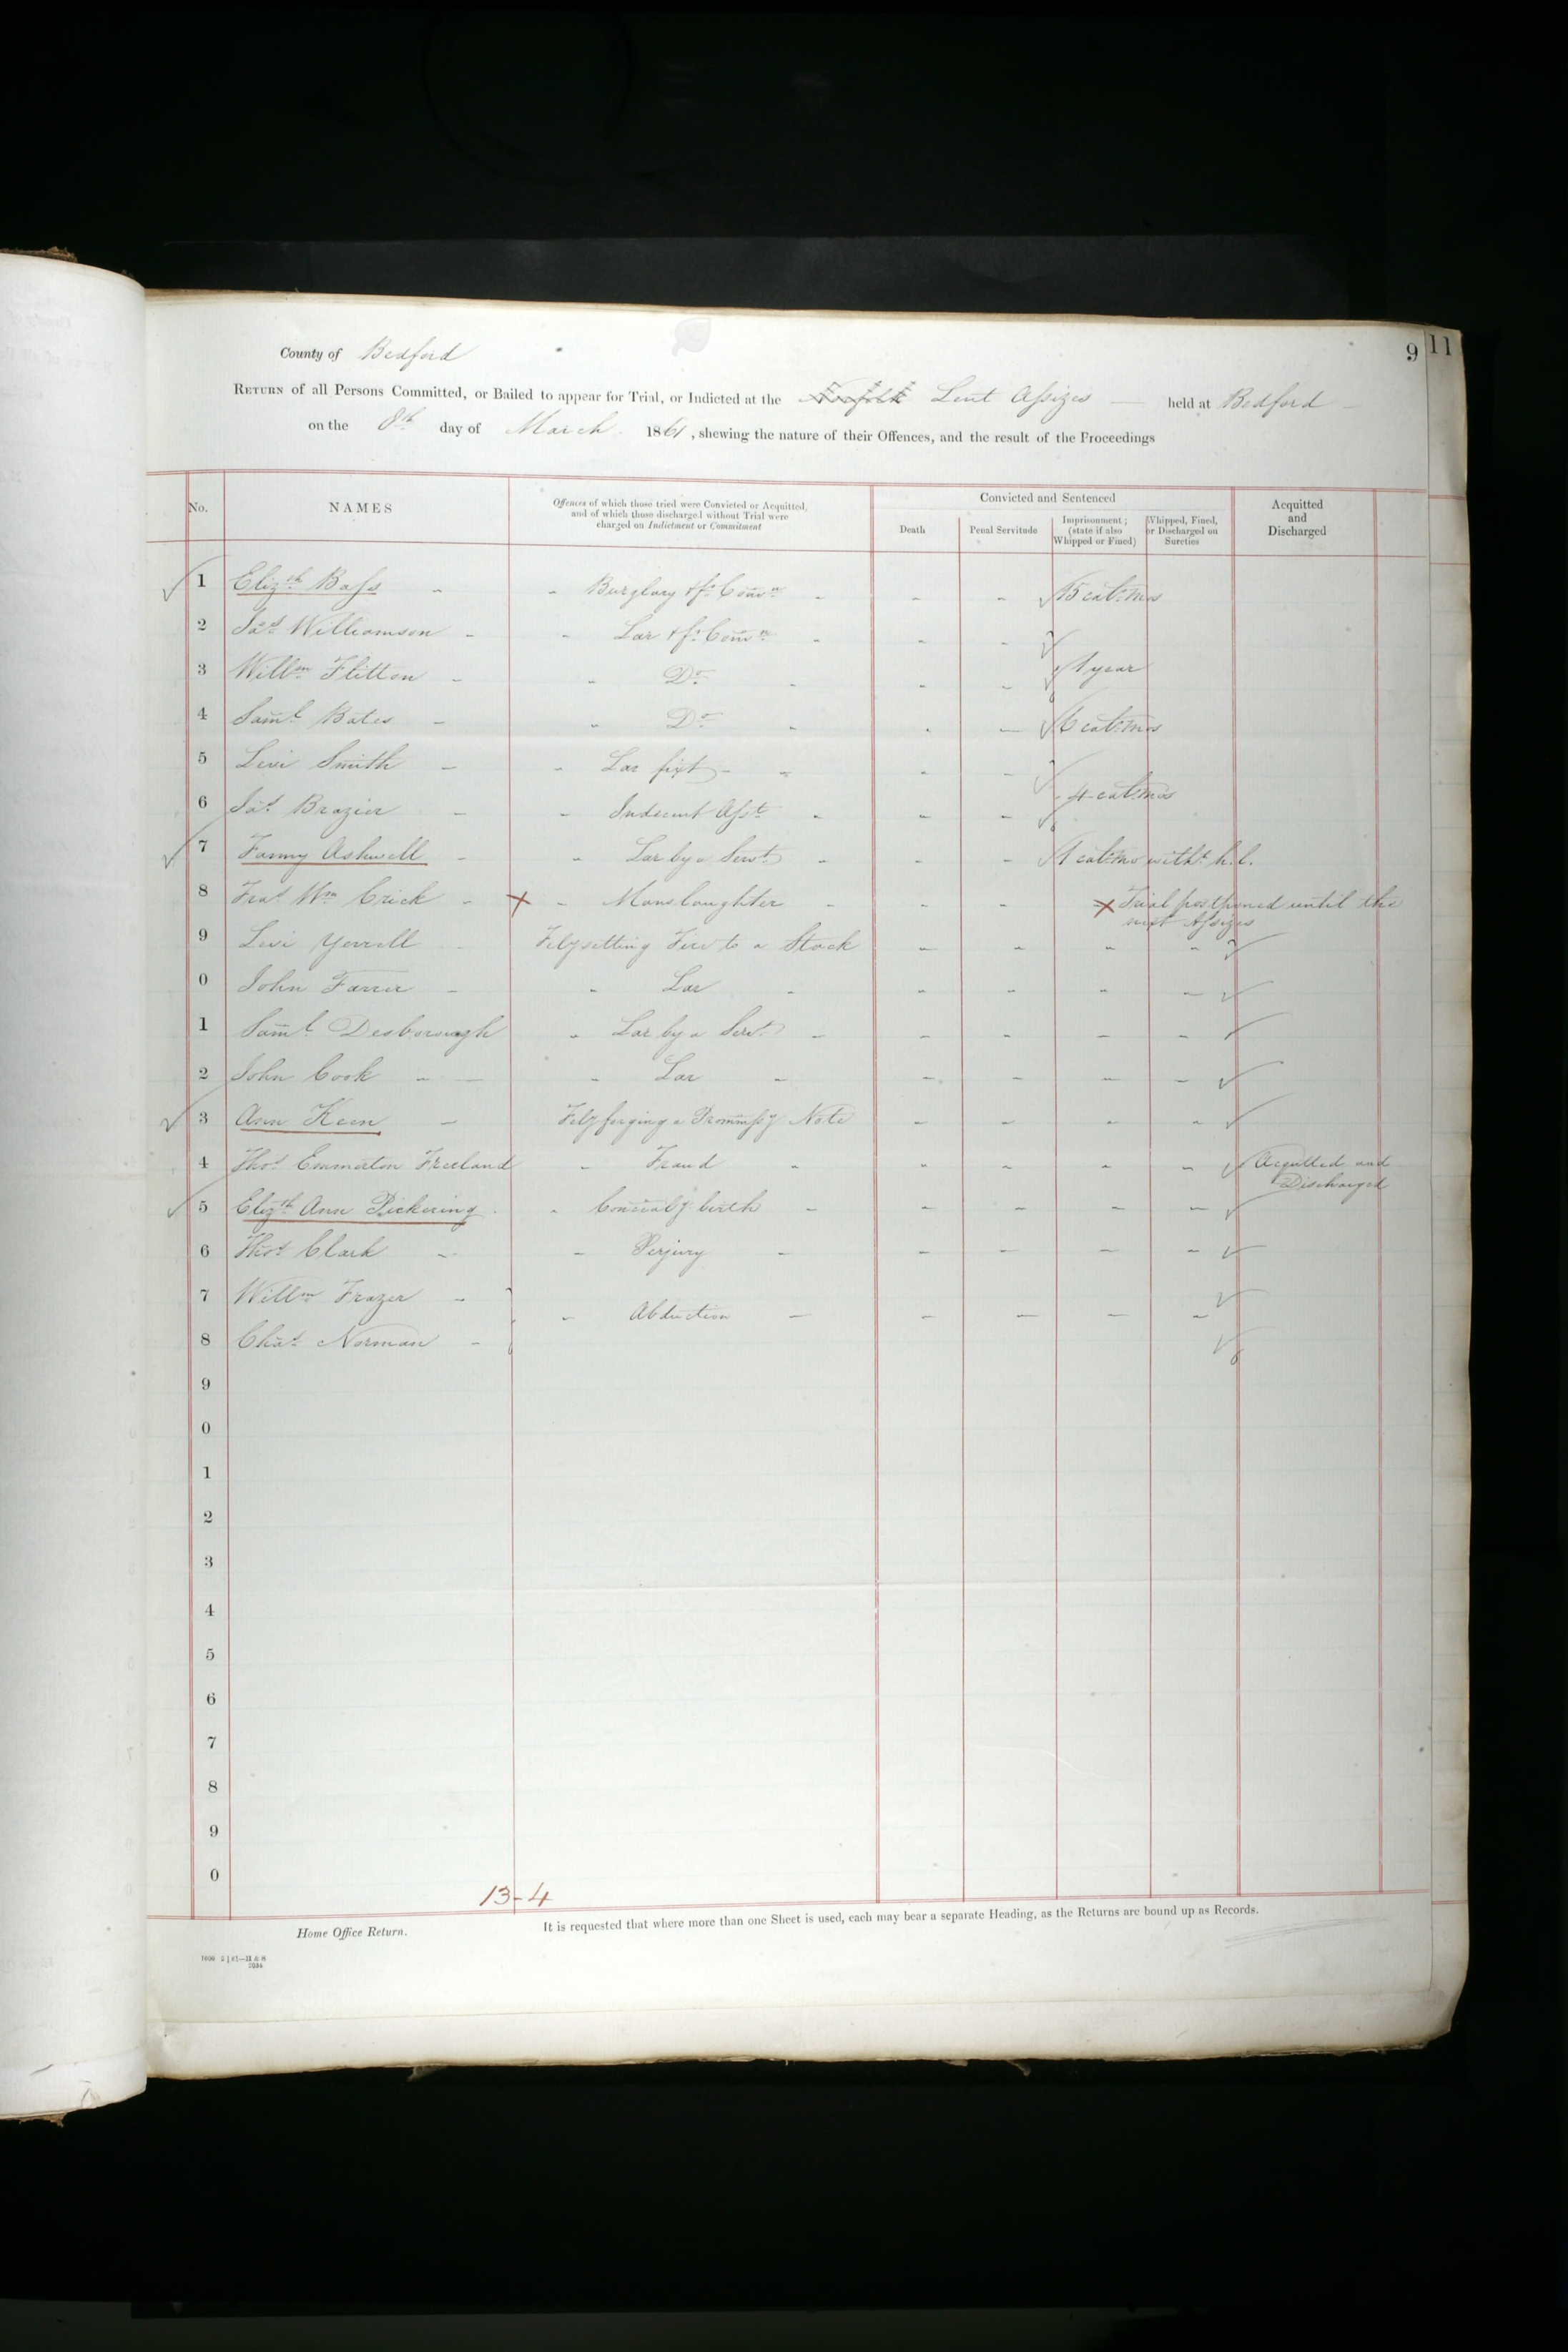 9 11
County of Bedford
RETURN of all Persons Committed, or Bailed to appear for Trial, or Indicted at the Norfolk Lent Assizes — held at Bedford —
on the 8th day of March 1861, shewing the nature of their Offences, and the result of the Proceedings
No. NAMES Offences of which those tried were Convicted or Acquitted, and of which those discharged without Trial were charged on Indictment or Commitment Convicted and Sentenced Acquitted and Discharged
Death Penal Servitude Imprisonment; (state if also Whipped or Fined) Whipped, Fined, or Discharged on Sureties
1 Elizth Bass - - Burglary & fr Convn - - - 15 cal: mos
2 Jas Williamson - - Lar & fr Convn - - -
3 Willm Flitton - - Do - - - 1 year
4 Saml Bates - - Do - - - 6 cal: mos
5 Levi Smith - - Lar fixt - - - -
6 Jas Brazier - - Indecent Asst - - - 4 cal: mos
7 Fanny Ashwell - - Lar by a Servt - - - 1 cal: mo witht h.l.
8 Fras Wm Crick - x - Manslaughter - - - x Trial postponed until the
next Assizes
9 Levi Yerrell - Fely setting Fire to a Stack - - - -
0 John Farrer - - Lar - - - - -
1 Saml Desborough - Lar by a Servt - - - - -
2 John Cook - - - Lar - - - - -
3 Ann Keen - Fely forging a Promissy Note - - - -
4 Thos Emmerton Freeland - Fraud - - - - - Acquitted and
Discharged
5 Elizth Ann Pickering - - Concealg birth - - - - -
6 Thos Clark - - Perjury - - - - -
7 Willm Frazer -
- Abduction - - - - -
8 Chas Norman -
9
0
1
2
3
4
5
6
7
8
9
0
13-4
Home Office Return.
It is requested that where more than one Sheet is used, each may bear a separate Heading, as the Returns are bound up as Records.